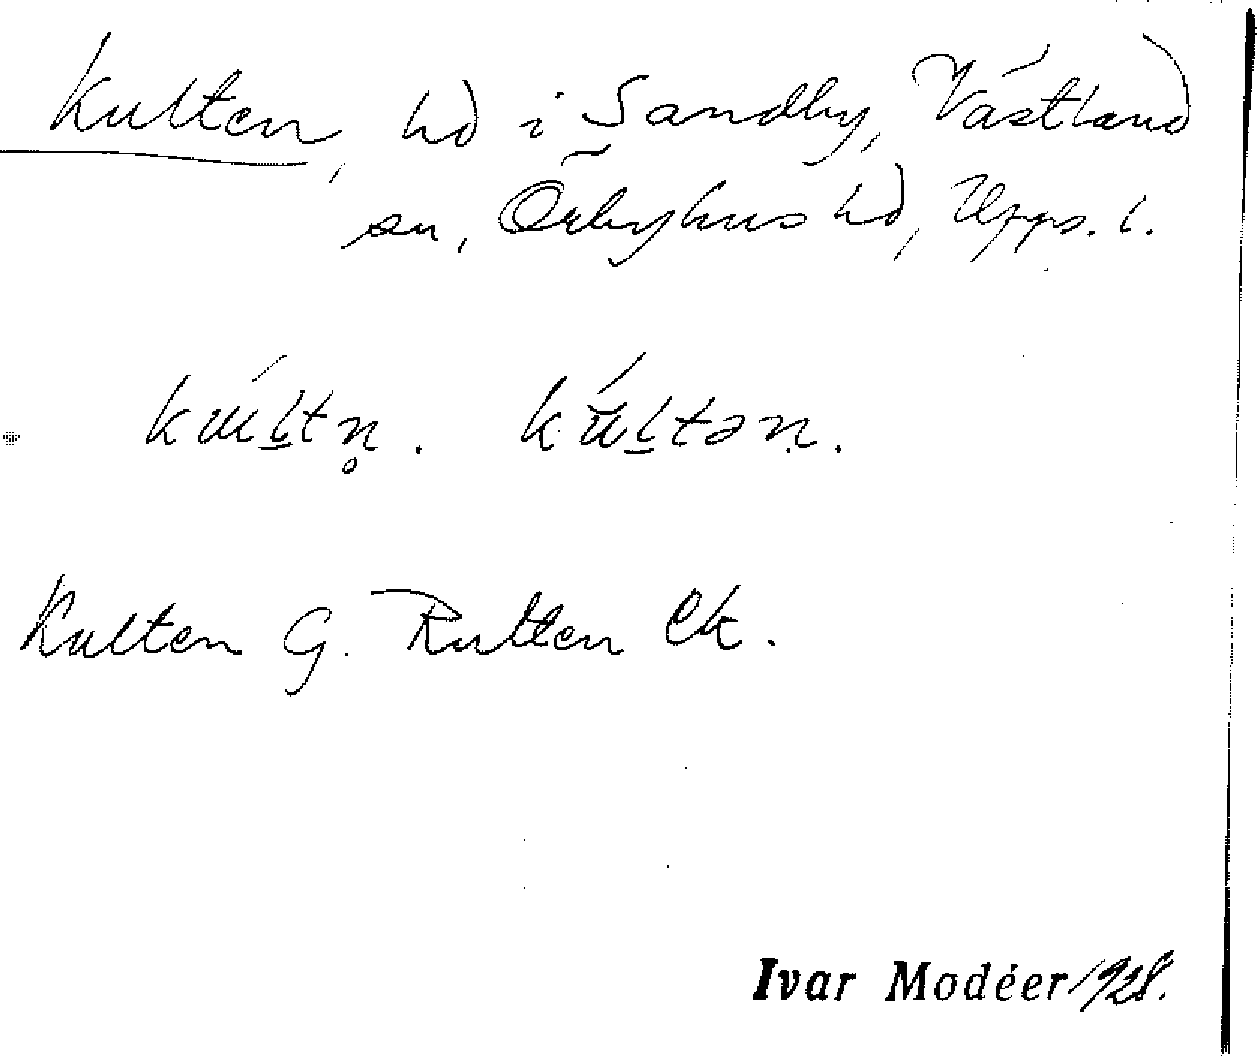 Kulten, hd i Sandby, Västland
sn, Örbyhus hd, Upps. l.
Kulten G. Rulten Ek.
Ivar Modéer 1928.